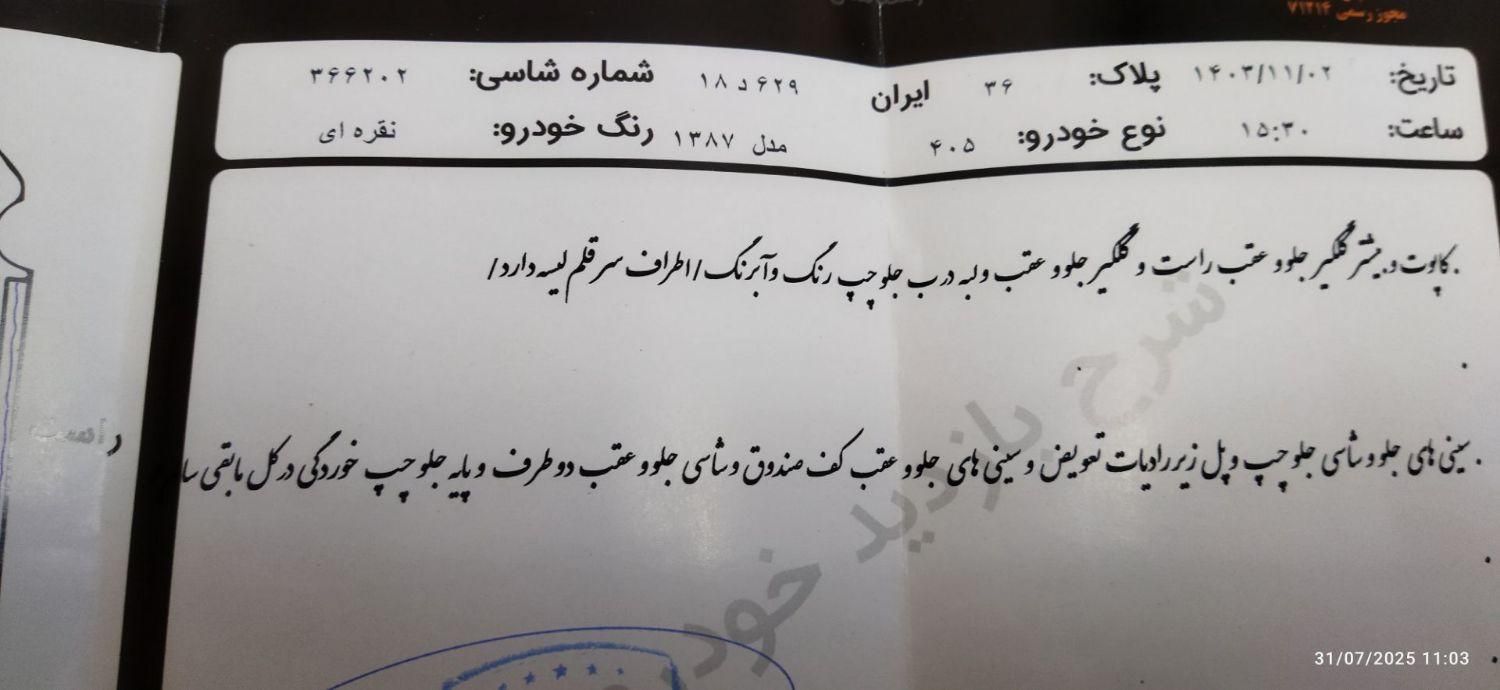 مجوز رسمی ۷۱۲۱۴
تاریخ: ۱۴۰۳/۱۱/۰۲ پلاک: ۳۶ ایران ۶۲۹ د ۱۸ شماره شاسی: ۳۶۶۲۰۲
ساعت: ۱۵:۳۰ نوع خودرو: ۴۰۵ مدل ۱۳۸۷ رنگ خودرو: نقره ای
. کاپوت و بیشتر گلگیر جلو و عقب راست و گلگیر جلو و عقب و لبه درب جلو چپ رنگ و آبرنگ / اطراف سر قلم لیسه دارد /
. سینی های جلو و شاسی جلو چپ و پل زیر رادیات تعویض و سینی های جلو و عقب کف صندوق و شاسی جلو و عقب دو طرف و پایه جلو چپ خوردگی در کل مابقی سا
شرح بازدید خودرو
31/07/2025 11:03